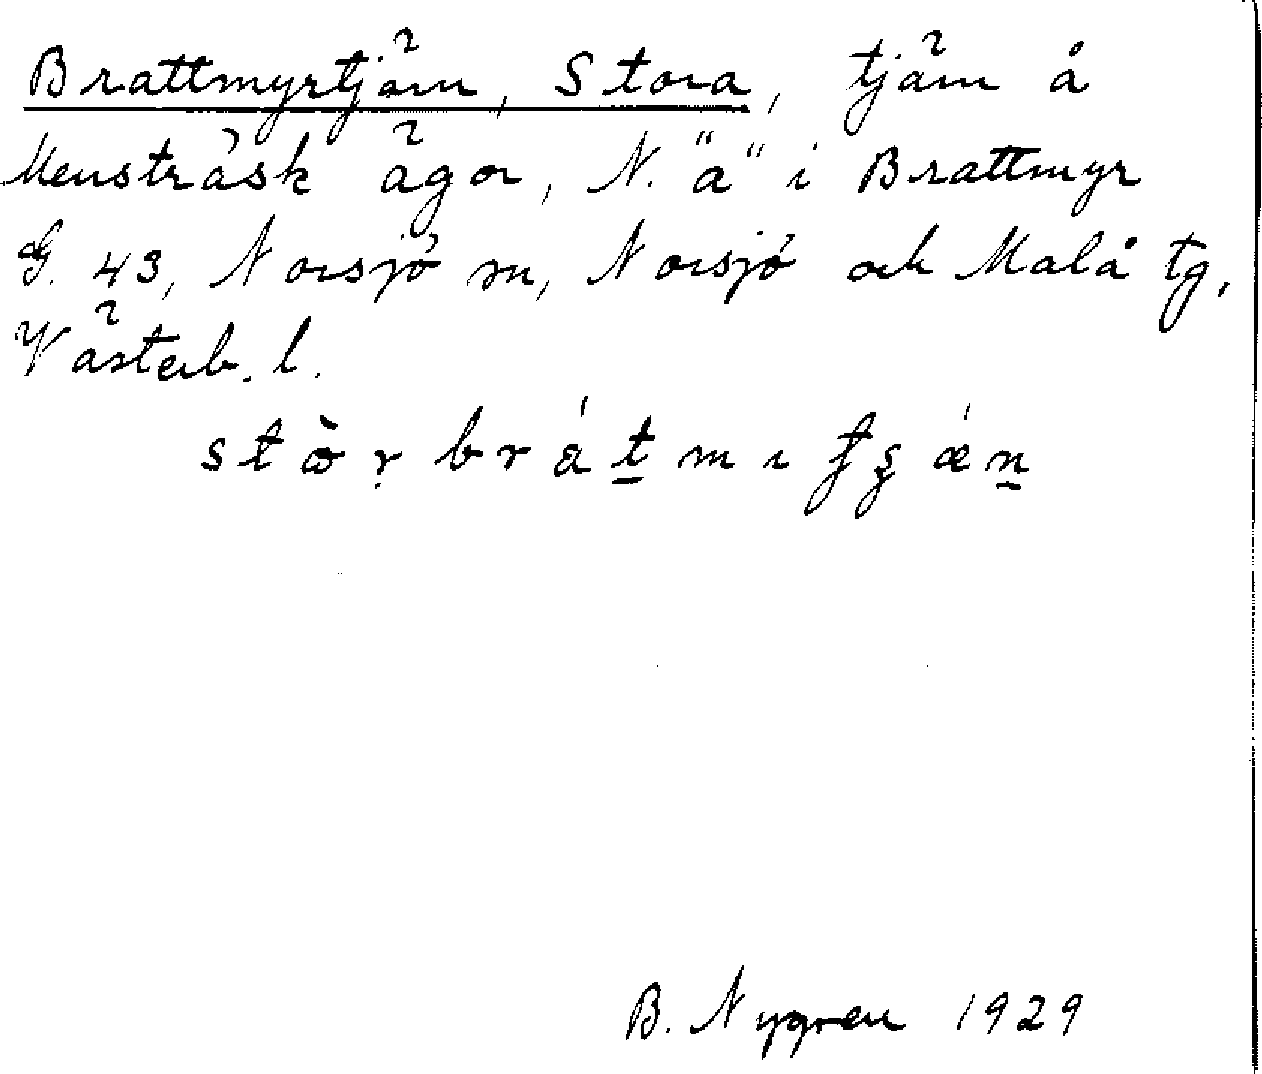 Brattmyrtjärn, Stora, tjärn å
Mensträsk ägor, N. "a" i Brattmyr
G. 43, Norsjö sn, Norsjö och Malå tg,
Västerb. l.
B. Nygren 1929